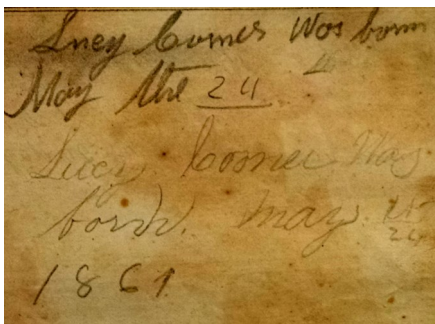 Lucy Comer Was born
May the 24
Lucy Comer Was
born. May 24
1861